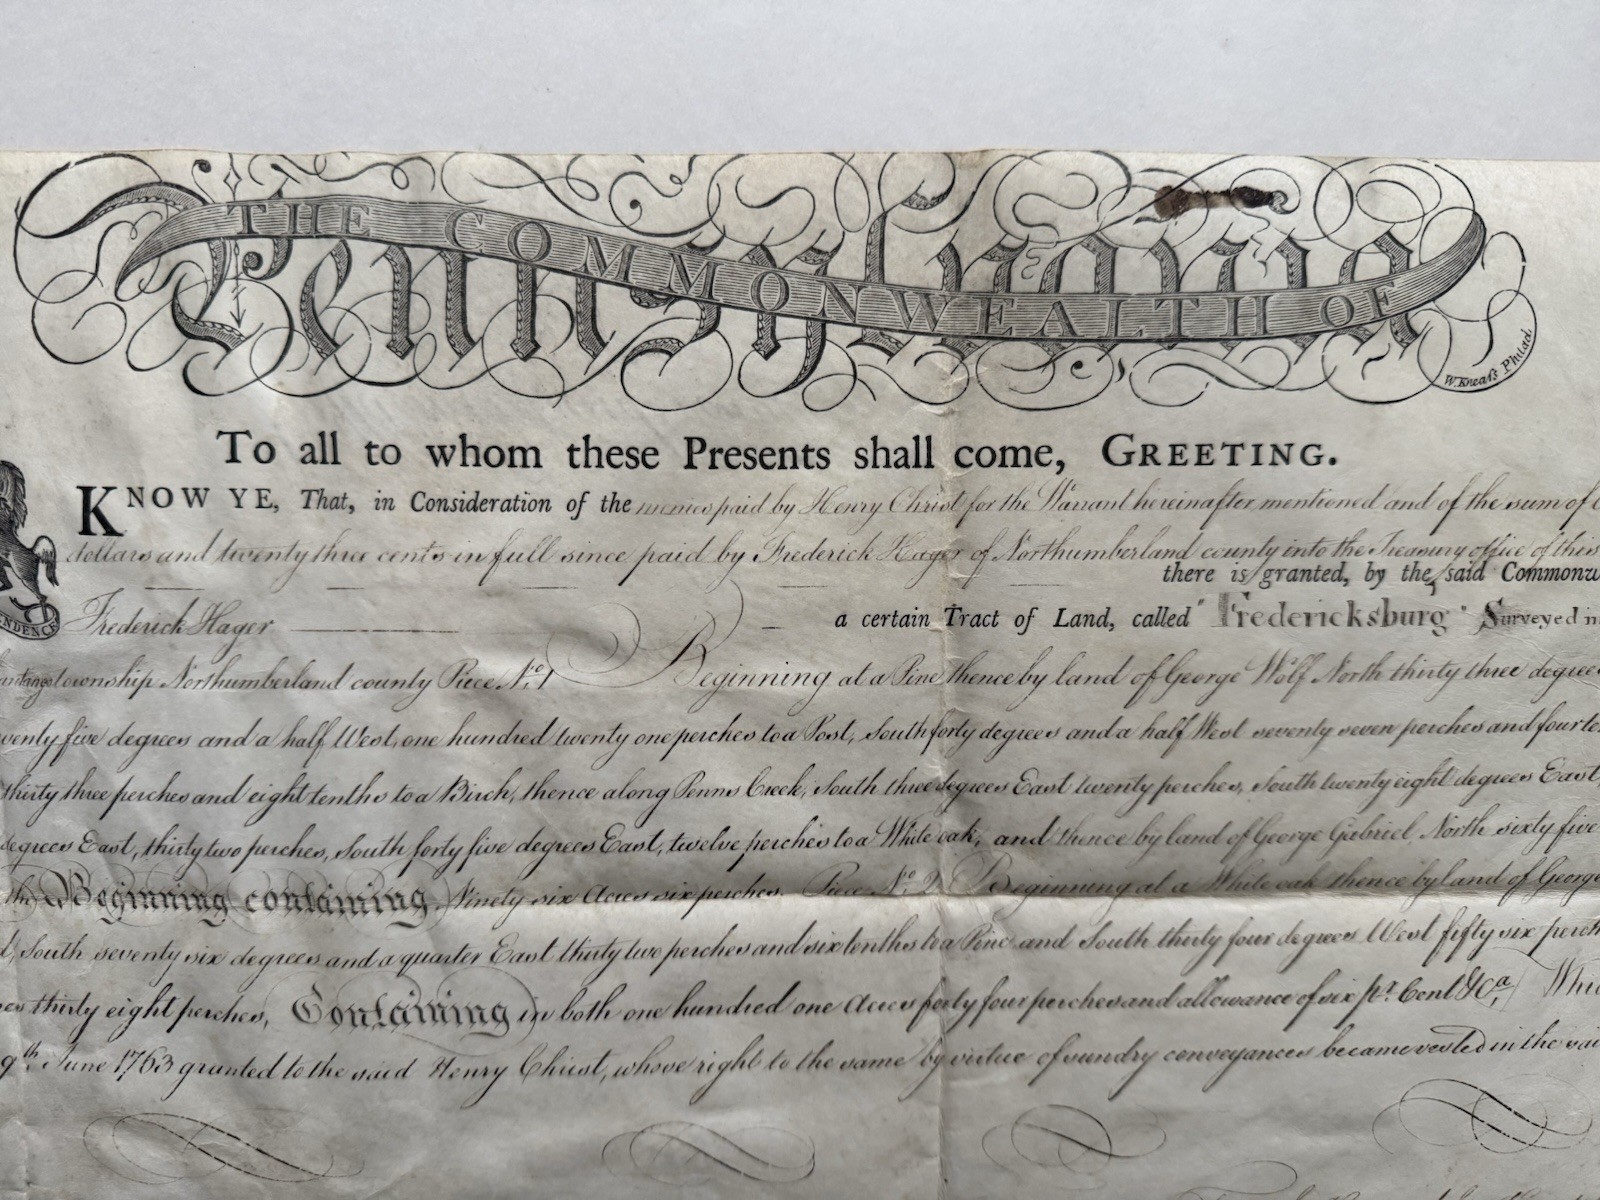 THE COMMONWEALTH OF
Pennsylvania
W. Kneass Philad.
To all to whom these Presents shall come, GREETING.
KNOW YE, That, in Consideration of the monies paid by Henry Christ for the Warrant hereinafter mentioned and of the sum of
dollars and twenty three cents in full since paid by Frederick Hager of Northumberland county into the Treasury office of this
there is granted, by the said Commonw
NDENCE
Frederick Hager a certain Tract of Land, called "Fredericksburg" Surveyed in
township Northumberland county Piece No. 1 Beginning at a Pine thence by land of George Wolf North thirty three degrees
wenty five degrees and a half West, one hundred twenty one perches to a Post, South forty degrees and a half West seventy seven perches and four te
thirty three perches and eight tenths to a Birch, thence along Penns Creek, South three degrees East twenty perches, South twenty eight degrees East,
degrees East, thirty two perches, South forty five degrees East, twelve perches to a White oak, and thence by land of George Gabriel, North sixty five
the Beginning containing Ninety six Acres six perches. Piece No. 2 Beginning at a White oak thence by land of George
d, South seventy six degrees and a quarter East thirty two perches and six tenths to a Pine and South thirty four degrees West fifty six perch
es thirty eight perches, Containing in both one hundred one Acres forty four perches and allowance of six pr. Cent &Ca. Whi
9th. June 1763 granted to the said Henry Christ, whose right to the same by virtue of sundry conveyances became vested in the sai